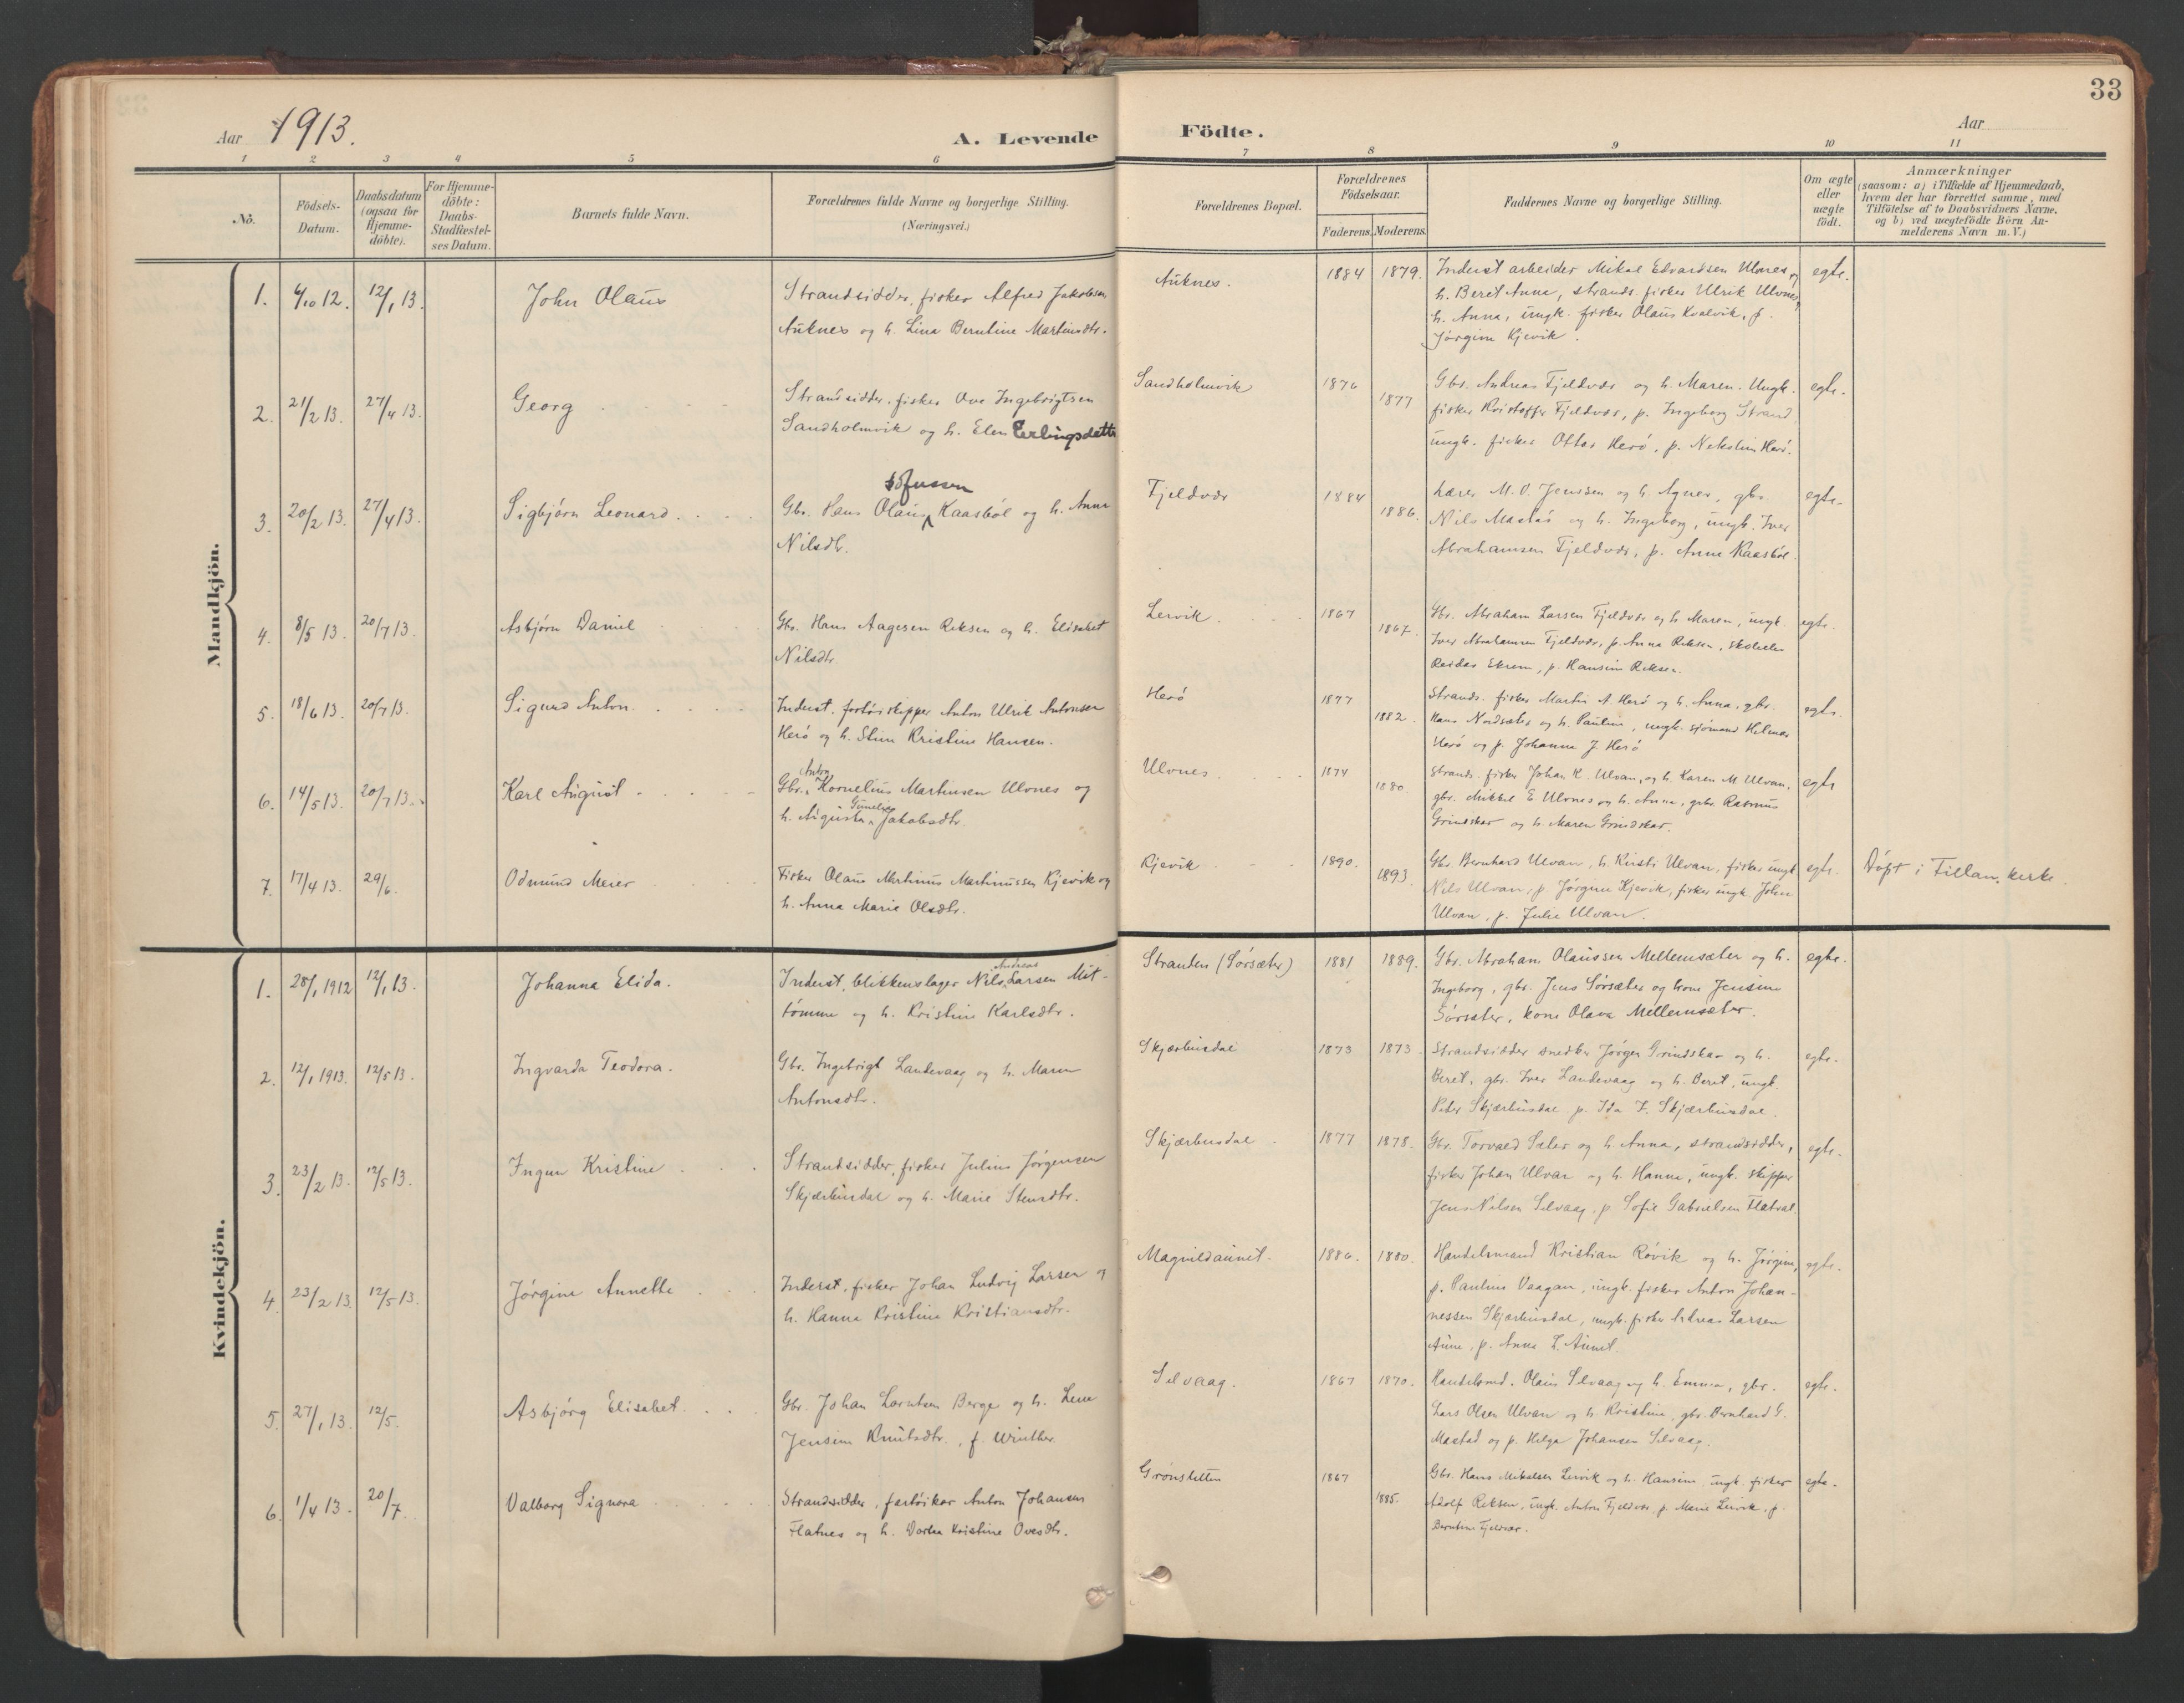 33
Aar 1913.
A. Levende Födte.
Aar
1 2 3 4 5 6 7 8 9 10 11
No.
Födsels-
Datum.
Daabsdatum
(ogsaa for
Hjemme-
döbte).
For Hjemme-
döbte:
Daabs-
Stadfæstel-
ses Datum.
Barnets fulde Navn.
Forældrenes fulde Navne og borgerlige Stilling.
(Næringsvei.)
Forældrenes Bopæl.
Forældrenes
Födselsaar.
Faderens. Moderens.
Faddernes Navne og borgerlige Stilling.
Om ægte
eller
uægte
födt.
Anmærkninger
(saasom: a) i Tilfælde af Hjemmedaab,
hvem der har forrettet samme, med
Tilföielse af to Daabsvidners Navne,
og b) ved uægtefödte Börn An-
melderens Navn m. V.)
Mandkjön.
1. 12. 12/1 13. John Olaus
Strandsidder, fisker Alfred Jakobsen
Auknes og h. Lina Berntine Martinsdtr.
Auknes. 1884 1879.
Inderst arbeider Mikal Edvardsen Ulvnes og
h. Beret Anna, strands. fisker Ulrik Ulvnes,
h. Anna, ungk. fisker Olaus Kvalvik, p.
Jörgine Kjevik.
egte.
2. 21/2 13. 27/4 13. Georg
Strandsidder, fisker Ove Ingebrigtsen
Sandholmvik og h. Elen Erlingsdatter
Sandholmvik 1876 1877
Gbr. Andreas Fjeldvær og h. Maren. Ungk.
fisker Kristoffer Fjeldvær, p. Ingeborg Strand
ungk. fisker Ottar Herö, p. Nekoline Herö.
egte.
3. 20/2 13. 27/4 13. Sigbjörn Leonard
Sofussen
Gbr. Hans Olaus Kaasböl og h. Anna
Nilsdtr.
Fjeldvær 1884 1886.
Lærer M. O. Jenssen og h. Agnes, gbr.
Nils Mastad og h. Ingeborg, ungk. Iver
Abrahamsen Fjeldvær, p. Anna Kaasböl.
egte.
4. 8/5 13. 20/7 13. Asbjörn Daniel
Gbr. Hans Aagesen Reksen og h. Elisabet
Nilsdtr.
Lervik 1867 1867.
Gbr. Abraham Larsen Fjeldvær og h. Maren, ungk.
Iver Abrahamsen Fjeldvær, p. Anna Reksen, skoleelev
Reidar Ekrem, p. Hansine Reksen.
egte.
5. 18/6 13. 20/7 13. Sigurd Anton
Inderst. fartöiskipper Anton Ulrik Antonsen
Herö og h. Stine Kristine Hansen.
Herö 1877 1882.
Strands. fisker Martin A. Herö og h. Anna, gbr.
Hans Nordsæter og h. Pauline, ungk. sjömand Helmer
Herö og p. Johanna J. Herö
egte.
6. 14/5 13. 20/7 13. Karl August
Anton
Gbr. Kornelius Martinsen Ulvnes og
h. Augusta Jakobsdtr.
Ulvnes 1874 1880.
Strands. fisker Johan K. Ulvan, og h. Karen M. Ulvan,
gbr. Mikkel E. Ulvnes og h. Anna, gbr. Rasmus
Grindskar og h. Maren Grindskar.
egte
7. 17/4 13. 29/6. Odmund Meier
Fisker Olaus Martinus Martinussen Kjevik og
h. Anna Marie Olsdtr.
Kjevik 1890. 1893.
Gbr. Bernhard Ulvan, h. Kirsti Ulvan, fisker ungk.
Nils Ulvan, p. Jörgine Kjevik, fisker ungk. Johan
Ulvan, p. Julie Ulvan.
egte.
Döpt i Fillan kirke.
Kvindekjön.
1. 28/1 1912 12/1 13. Johanna Elida.
Andreas
Inderst, blikkenslager Nils Larsen Mit-
tömme og h. Kristine Karlsdtr.
Stranden (Sörsæter) 1881 1889.
Gbr. Abraham Olaussen Mellemsæter og h.
Ingeborg, gbr. Jens Sörsæter og kone Jensine
Sörsæter, kone Olava Mellemsæter.
egte.
2. 12/1 1913. 12/5 13. Ingvarda Teodora.
Gbr. Ingebrigt Landevaag og h. Maren
Antonsdtr.
Skjærbusdal 1873 1873
Strandsidder snedker Jörgen Grindskar og h.
Beret, gbr. Iver Landevaag og h. Beret, ungk.
Peter Skjærbusdal p. Ida F. Skjærbusdal.
egte.
3. 23/2 13. 12/5 13. Ingun Kristine
Strandsidder, fisker Julius Jörgensen
Skjærbusdal og h. Marie
Skjærbusdal 1877 1878.
Gbr. Torvald Sæter og h. Anna, strandsidder,
fisker Johan Ulvan og h. Hanna, ungk. skipper
Jens Nilsen Selvaag, p. Sofie Gabrielsen Flatval.
egte.
4. 23/2 13. 12/5 13. Jörgine Annette
Inderst, fisker Johan Ludvig Larsen og
h. Hanna Kristine Kristiansdtr.
Magnildaunet. 1886. 1880.
Handelsmand Kristian Rövik og h. Jörgine,
p. Pauline Vaagan, ungk. fisker Anton Johan-
nessen Skjærbusdal, ungk. fisker Andreas Larsen
Aune, p. Anna L. Aunet.
egte.
5. 27/1 13. 12/5. Asbjörg Elisabet
Gbr. Johan Larntsen Berge og h. Lene
Jensine Knutsdtr., f. Winther.
Selvaag. 1867 1870.
Handelsmd. Olaus Selvaag og h. Emma, gbr.
Lars Olsen Ulvan og h. Kristine, gbr. Bernhard G.
Mastad og p. Helga Johansen Selvaag.
egte.
6. 1/4 13. 20/7. Valborg Signora
Strandsidder, Anton Johansen
Flatnes og h. Dortea Kristine Ovesdtr.
Grönsletten 1867 1885.
Gbr. Hans Mikalsen Lervik og h. Hansine, ungk. fisker
Adolf Reksen, ungk. Anton Fjeldvær, p. Marie Lervik, p.
Berntine Fjeldvær.
egte.